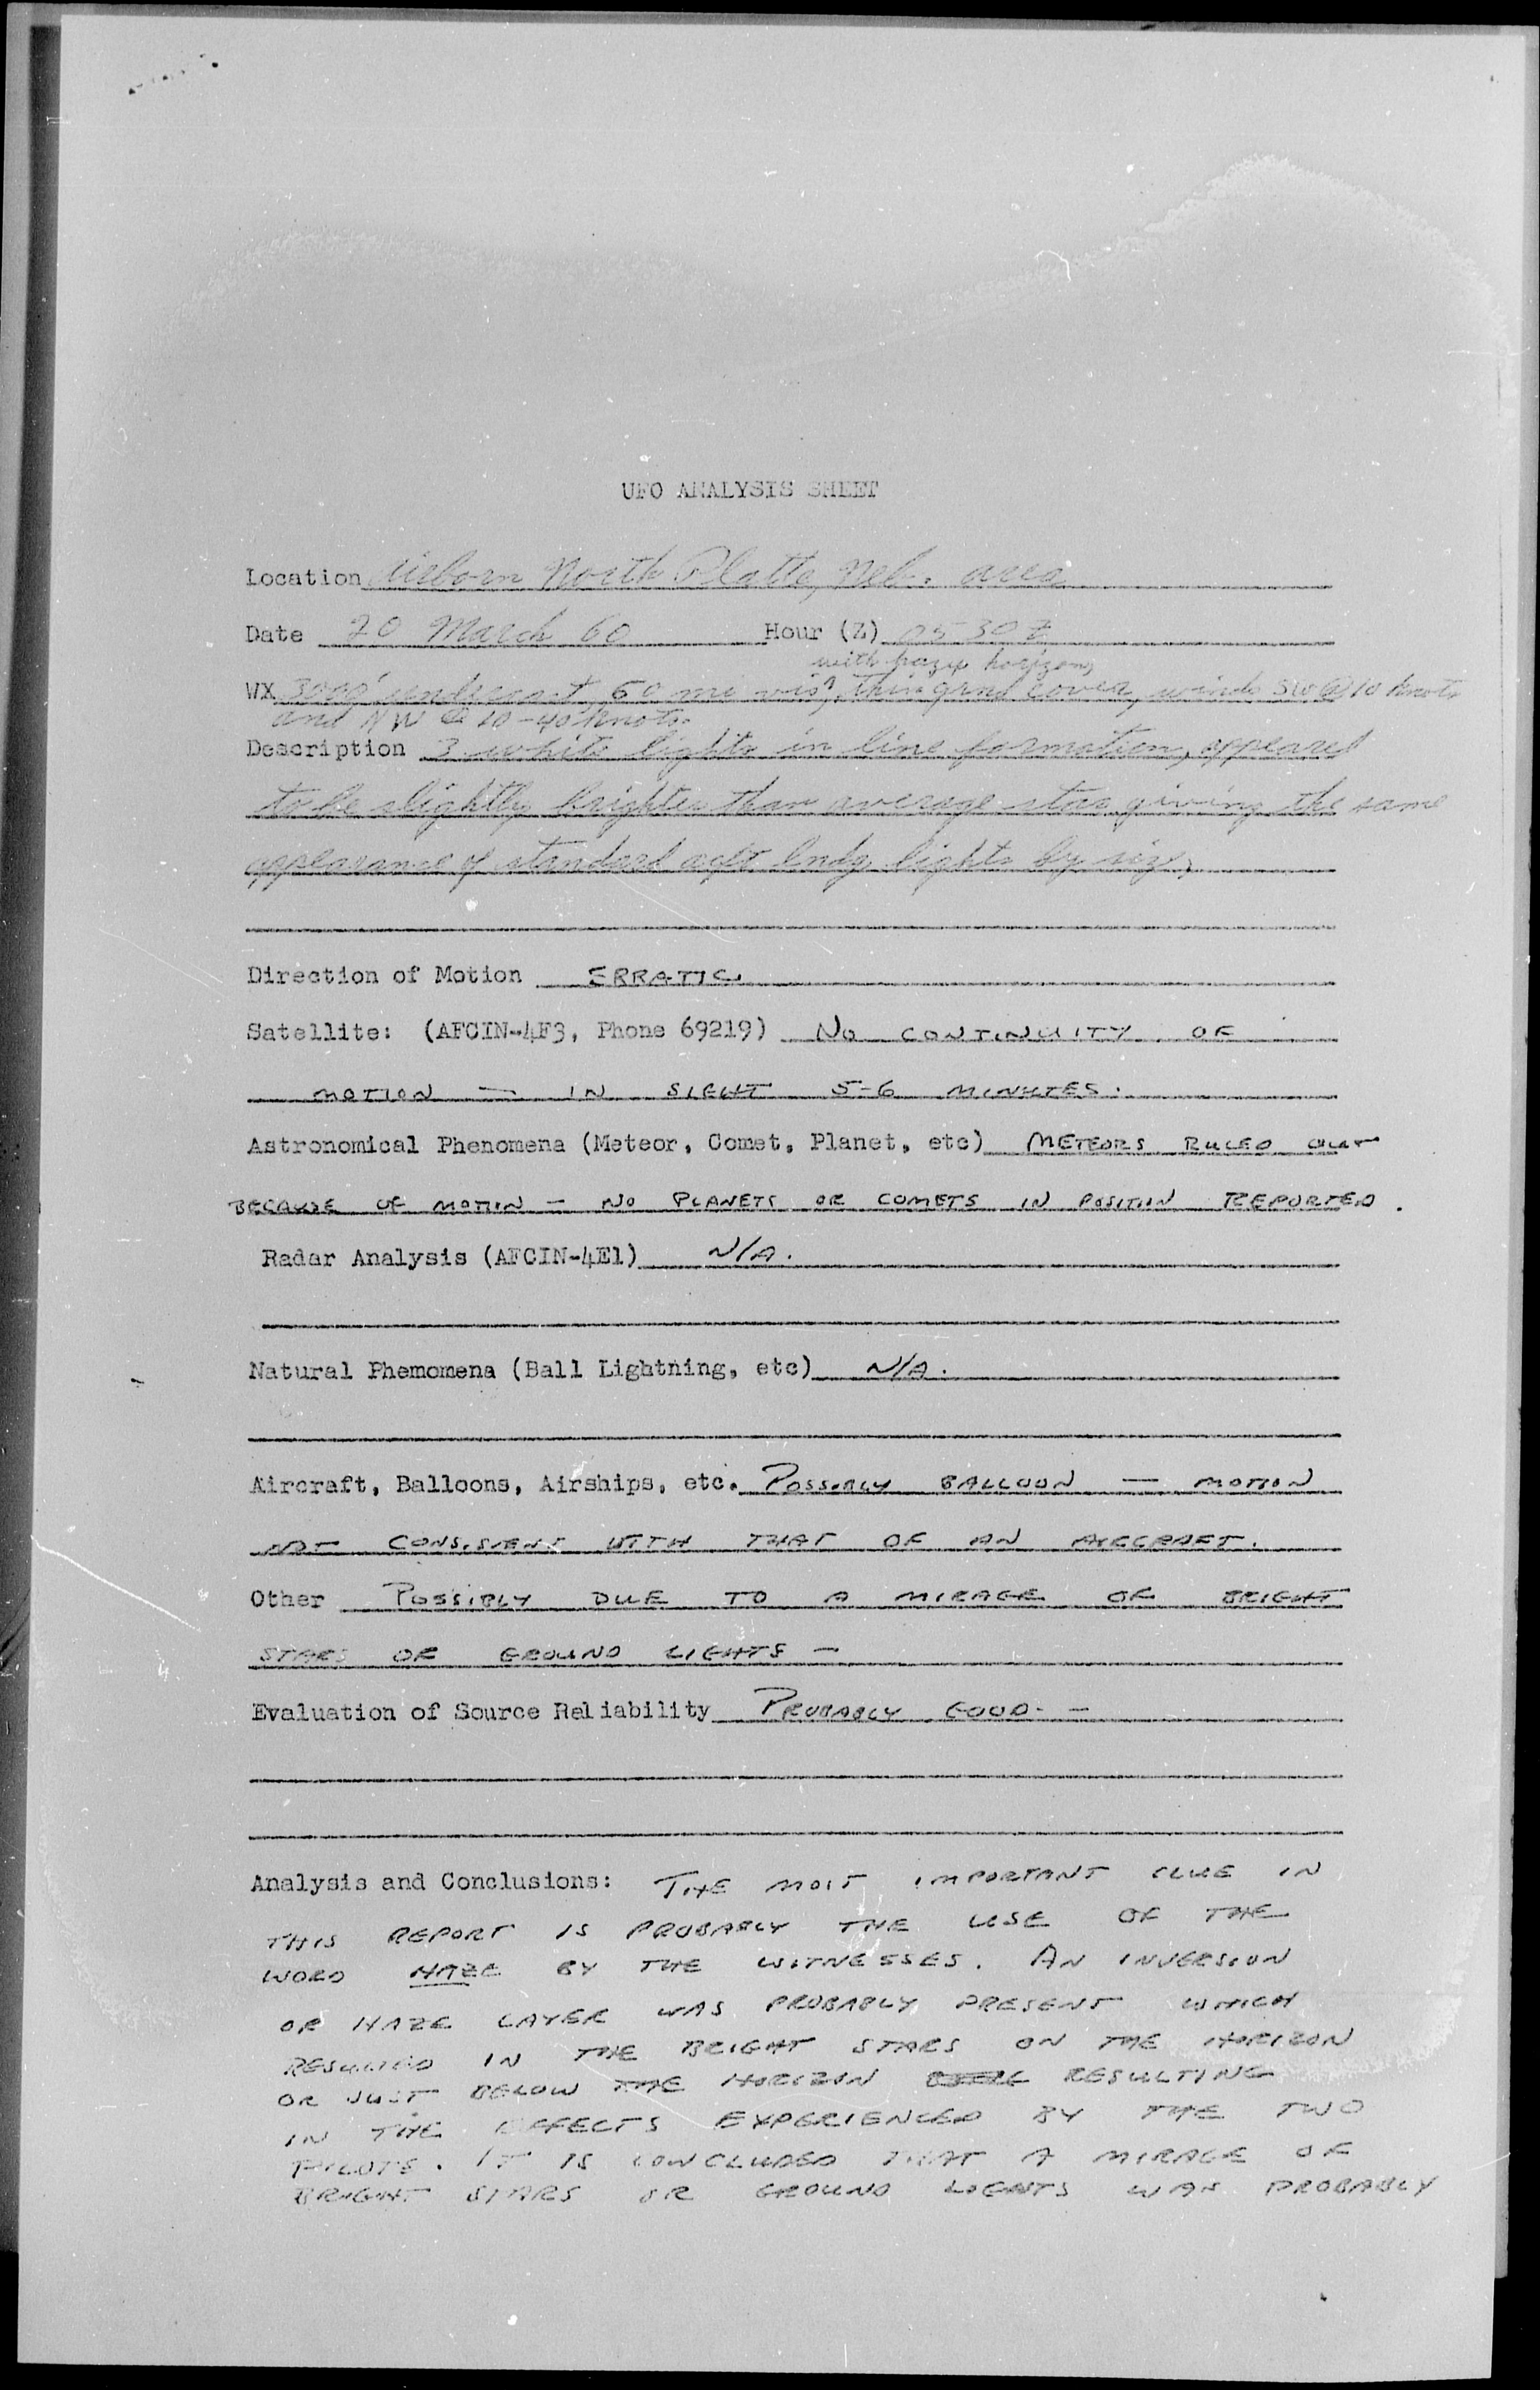 UFO ANALYSIS SHEET
Location Airborn North Platte, Neb. area
Date 20 March 60 Hour (Z) 0530Z
with hazy horizon,
WX 3000' undercast, 60 mi vis, thin grnd cover, winds SW @ 10 knots
and NW @ 20-40 knots.
Description 3 white lights in line formation, appeared
to be slightly brighter than average star giving the same
appearance of standard acft body lights by size,
Direction of Motion ERRATIC.
Satellite: (AFCIN-4F3, Phone 69219) NO CONTINUITY OF
MOTION — IN SIGHT 5-6 MINUTES.
Astronomical Phenomena (Meteor, Comet, Planet, etc) METEORS RULED OUT
BECAUSE OF MOTION — NO PLANETS OR COMETS IN POSITION REPORTED.
Radar Analysis (AFCIN-4E1) N/A.
Natural Phemomena (Ball Lightning, etc) N/A.
Aircraft, Balloons, Airships, etc. POSSIBLY BALLOON — MOTION
NOT CONSISTENT WITH THAT OF AN AIRCRAFT.
Other POSSIBLY DUE TO A MIRAGE OF BRIGHT
STARS OR GROUND LIGHTS —
Evaluation of Source Reliability PROBABLY GOOD. —
Analysis and Conclusions: THE MOST IMPORTANT CLUE IN
THIS REPORT IS PROBABLY THE USE OF THE
WORD HAZE BY THE WITNESSES. AN INVERSION
OR HAZE LAYER WAS PROBABLY PRESENT WHICH
RESULTED IN THE BRIGHT STARS ON THE HORIZON
OR JUST BELOW THE HORIZON RESULTING
IN THE EFFECTS EXPERIENCED BY THE TWO
PILOTS. IT IS CONCLUDED THAT A MIRAGE OF
BRIGHT STARS OR GROUND LIGHTS WAS PROBABLY